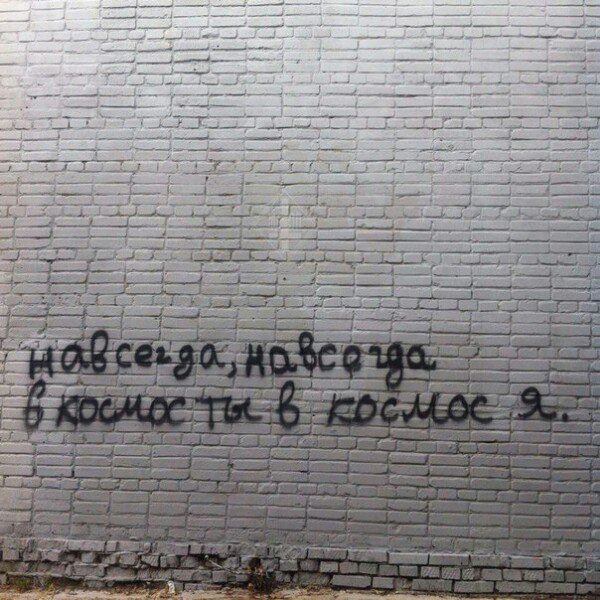 навсегда, навсегда
в космос ты в космос я.